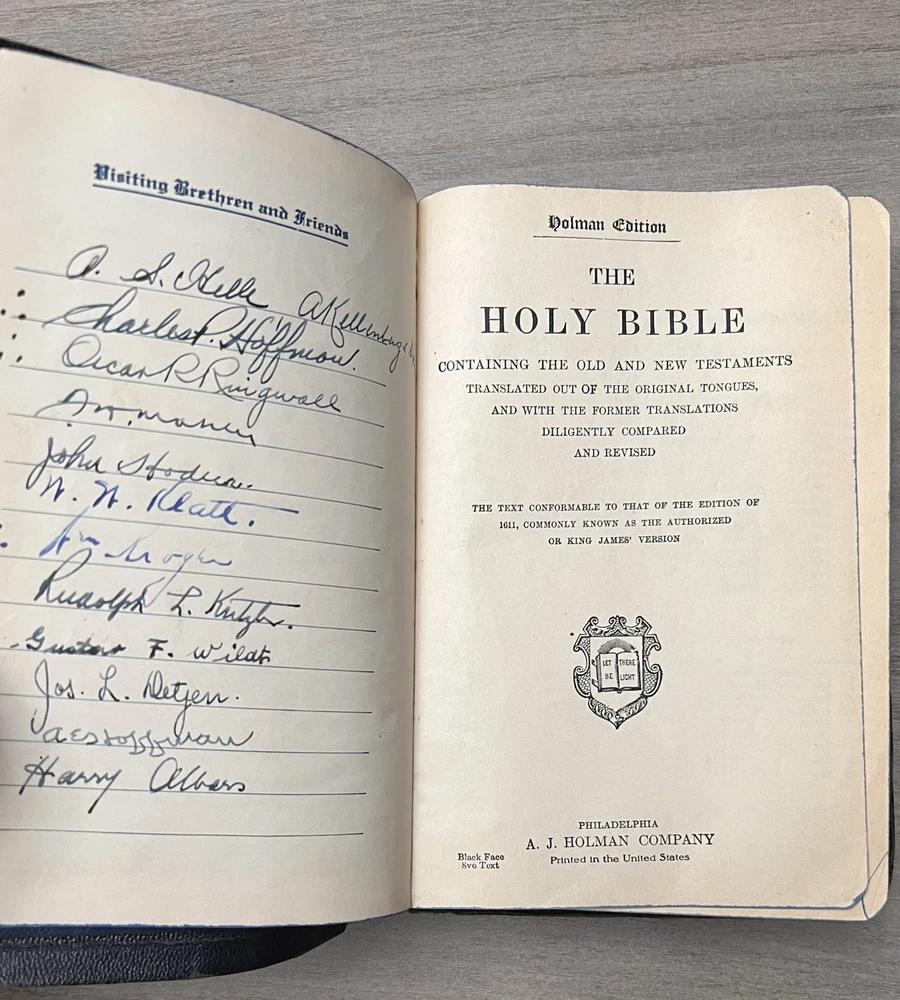 Visiting Brethren and Friends
A. S. Kelle
Charles P. Hoffman.
Oscar R Ringwall
John
W. W. Klatt.
Wm Kroger
Rudolph L. Kutzler.
Gustav F. Wildt
Jos. L. Detzen.
Hoffman
Harry Albars
Holman Edition
THE
HOLY BIBLE
CONTAINING THE OLD AND NEW TESTAMENTS
TRANSLATED OUT OF THE ORIGINAL TONGUES,
AND WITH THE FORMER TRANSLATIONS
DILIGENTLY COMPARED
AND REVISED
THE TEXT CONFORMABLE TO THAT OF THE EDITION OF
1611, COMMONLY KNOWN AS THE AUTHORIZED
OR KING JAMES' VERSION
LET THERE
BE LIGHT
PHILADELPHIA
A. J. HOLMAN COMPANY
Printed in the United States
Black Face
8vo Text